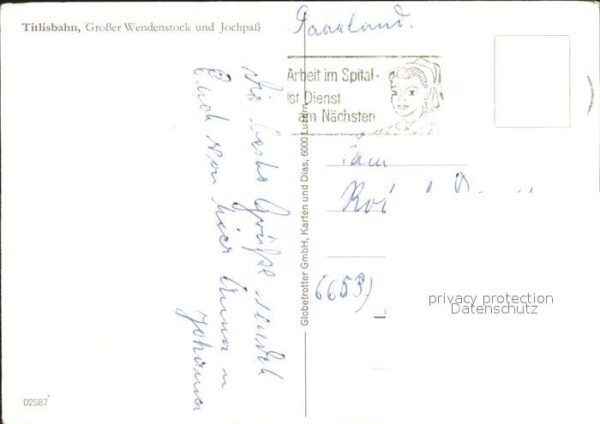 Titlisbahn, Großer Wendenstock und Jochpaß
Saarland.
Arbeit im Spital-
ist Dienst
am Nächsten
Die beste Grüße sendet
Euch von hier Anna u
Johanna
Globetrotter GmbH, Karten und Dias, 6000 Luzern
Fam
(6653)
privacy protection
Datenschutz
02587